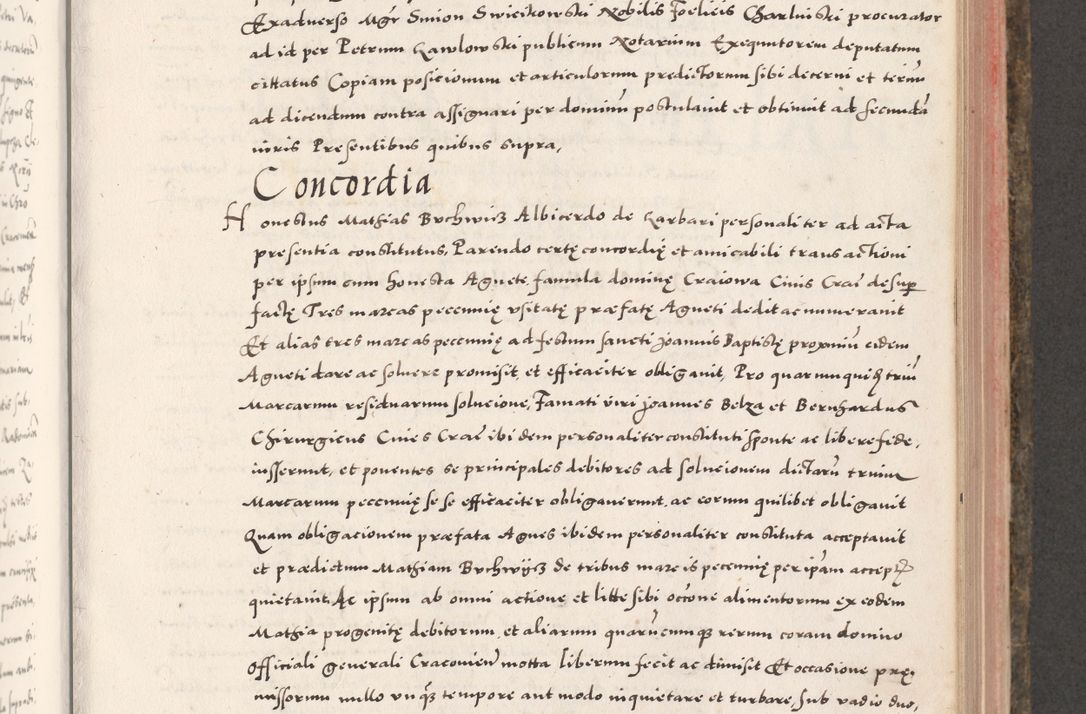 Exadverso Mgr̄ Simon Swieikowski Nobilis Foelicis Charluiski procurator
ad id per Petrum Kawlowski publicum Notarium Exequutorem deputatum
cittatus Copiam posicionum et articulorum predictorum sibi decerni et termū
ad dicendum contra assignari per dominū postulavit et obtinuit ad secundā
iuris Presentibus quibus supra,
Concordia
Honestus Mathias Buchwicz Albicerdo de Karbari personaliter ad acta
presentia constitutus, Parendo certę concordię et amicabili transactioni
per ipsum cum honesta Agnete famula dominę Craiowa Civis Crac̄ desup
factę Tres marcas pecunię usitatę præfatę Agneti dedit ac numeravit
Et alias tres marcas pecunię ad festum sancti Joannis Baptistę proximū eidem
Agneti dare ac solvere promisit, et efficaciter obligavit, Pro quarumquidē triū
Marcarum residuarum solucione, Famati viri Joannes Belza et Bernhardus
Chirurgicus Cives Crac̄ ibidem personaliter constituti sponte ac libere fide,
iusserunt, et ponentes se principales debitores ad solucionem dictarū trium
Marcarum pecunię sese efficaciter obligaverunt, ac eorum quilibet obligavit
Quam obligacionem præfata Agnes ibidem personaliter constituta acceptavit
et prædictum Mathiam Buchwijcz de tribus marcis pecunię per ip̄am accept
quietavit. Ac ipsum ab omni actione et lite sibi occōne alimentorum ex eodem
Mathia progenitę debitorum, et aliarum quarūcumq rerum coram domino
Officiali generali Cracovien̄ mota liberum fecit ac dimisit Et occasione prę,
missorum nullo unq̄ tempore aut modo inquietare et turbare, sub vadio duo,